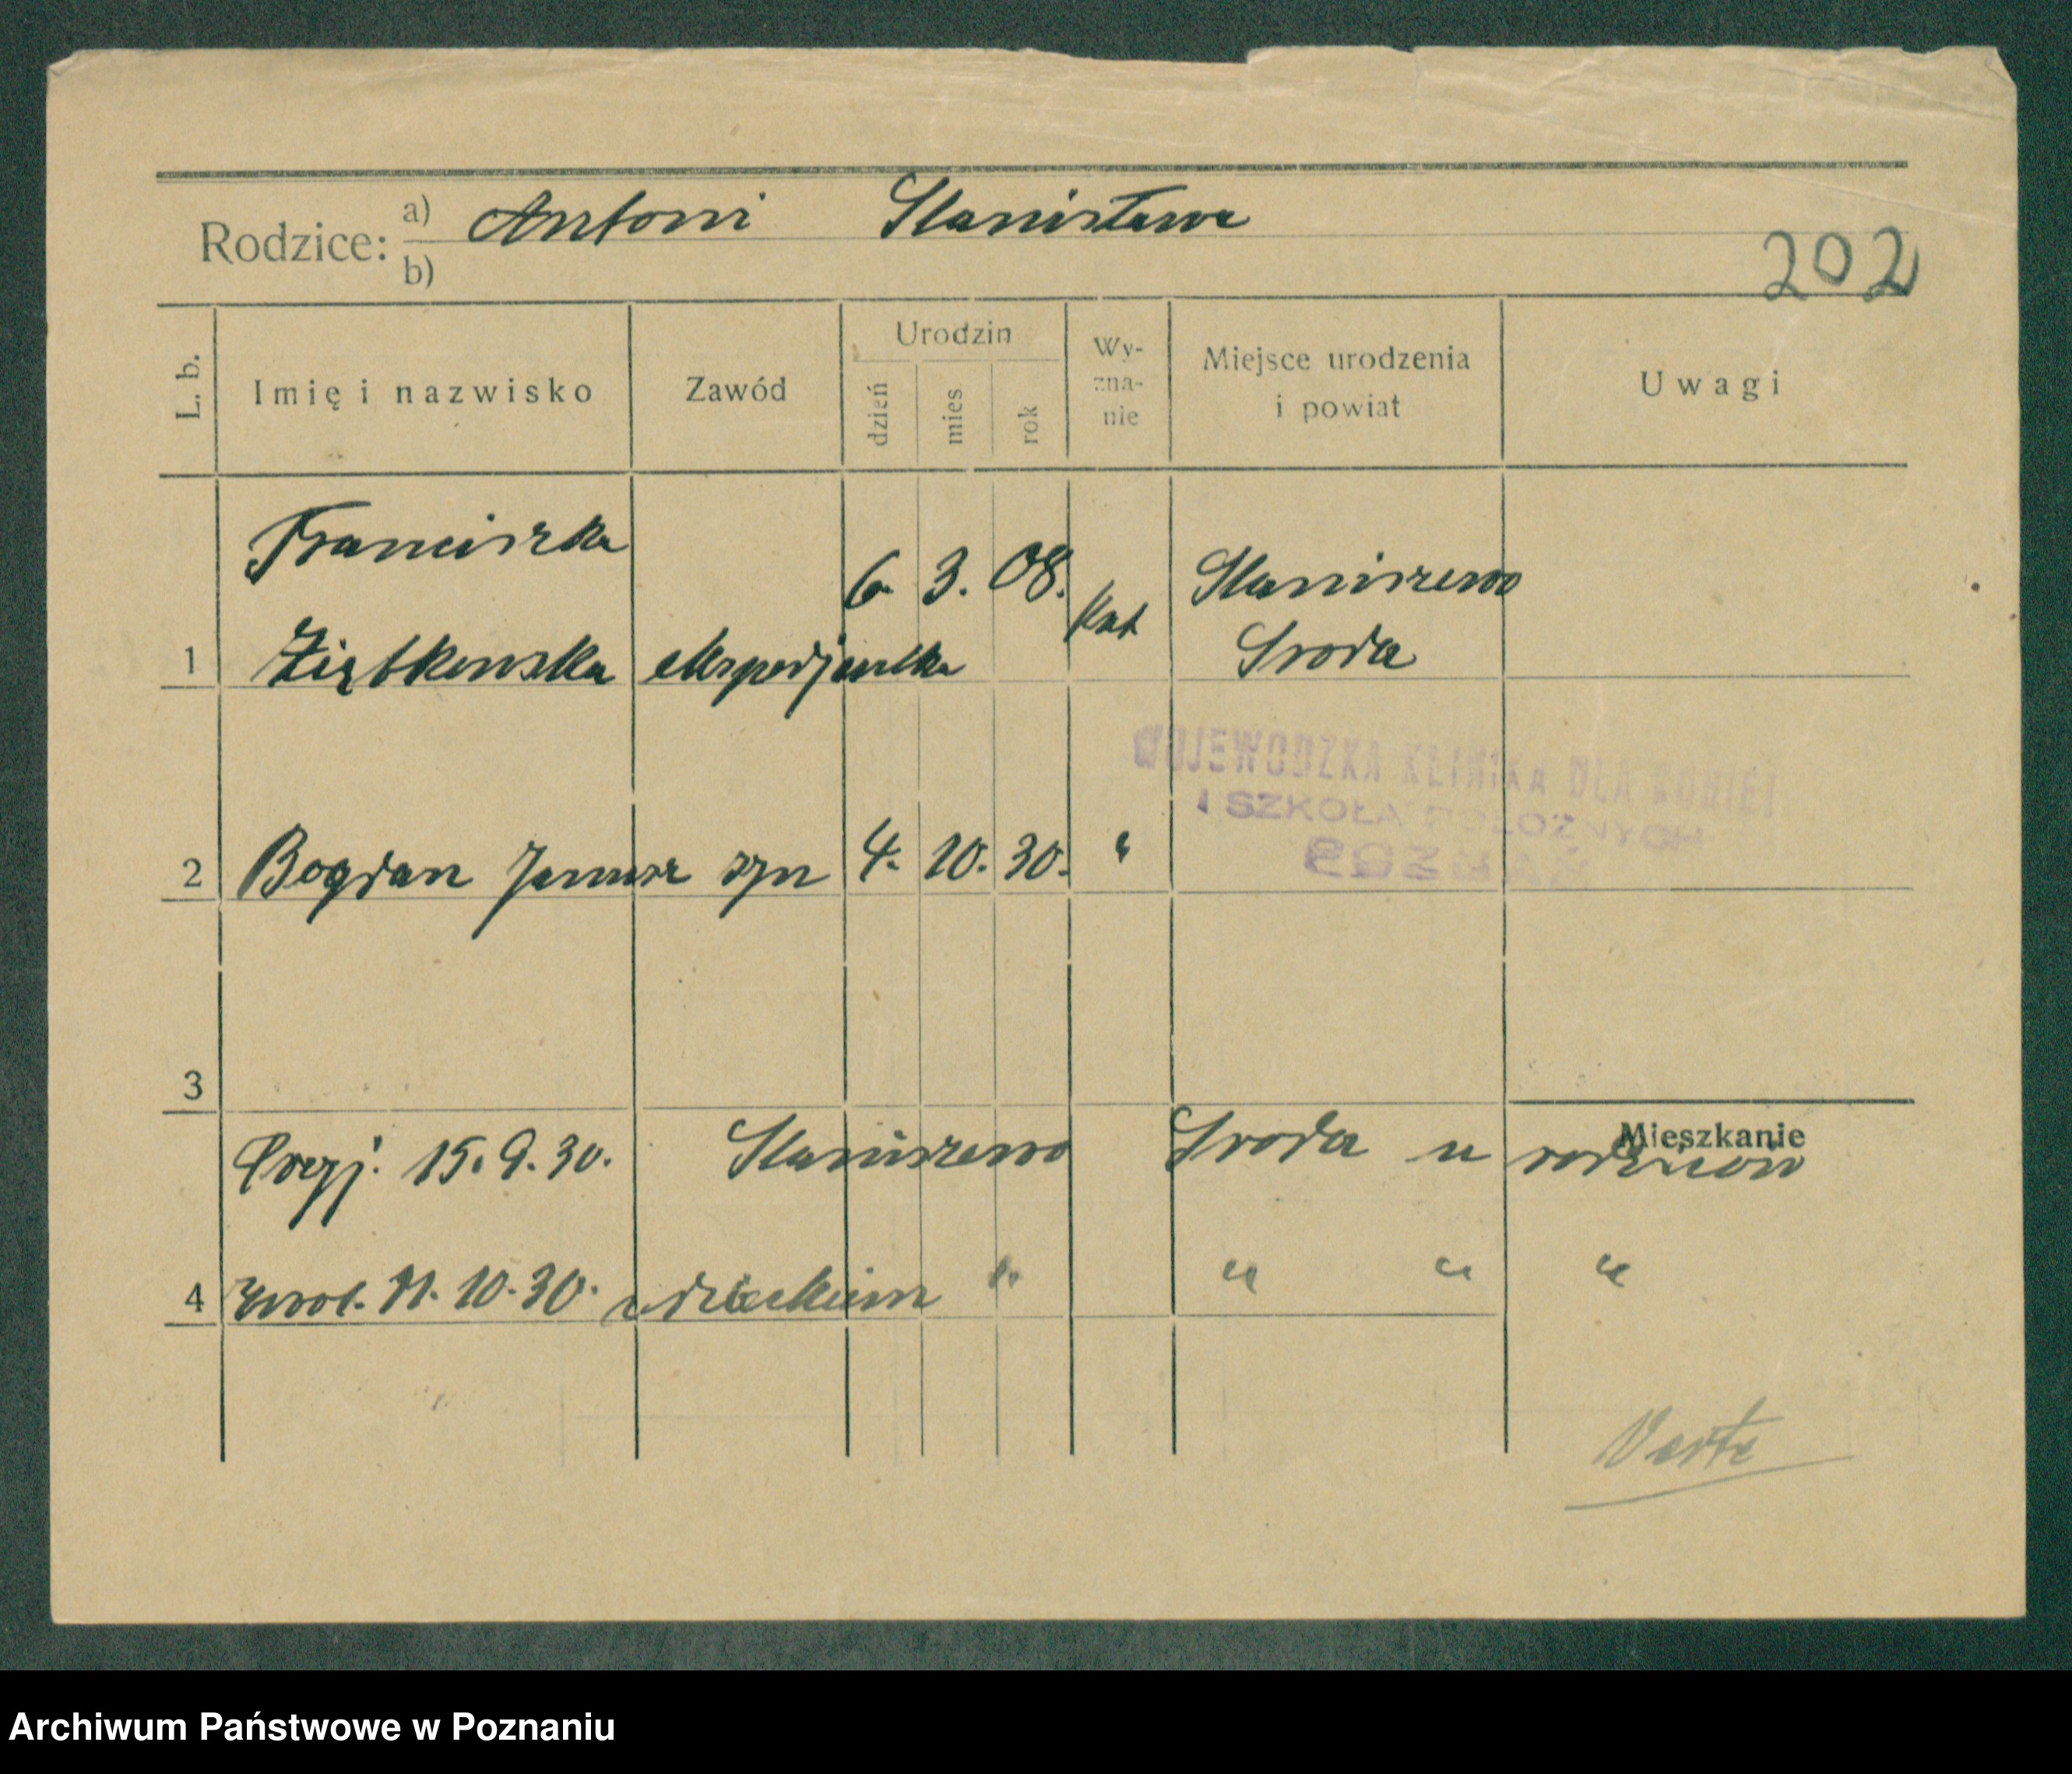 Rodzice: a) Antoni Stanisława
b)
202
L. b.
Imię i nazwisko
Zawód
Urodzin
dzień
mies
rok
Wy-
zna-
nie
Miejsce urodzenia
i powiat
Uwagi
Franciszka
6. 3. 08. Kat Staniszewo
1 Ziętkowska ekspedjentka Sroda
WOJEWODZKA KLINIKA DLA KOBIET
I SZKOŁA POŁOZNYCH
POZNAŃ
2 Bogdan Janusz syn 4. 10. 30. "
3
Mieszkanie
Przyj. 15. 9. 30. Staniszewo Sroda u rodziców
4 zwol. 11. 10. 30. z dzieckiem " " " "
Verte
Archiwum Państwowe w Poznaniu